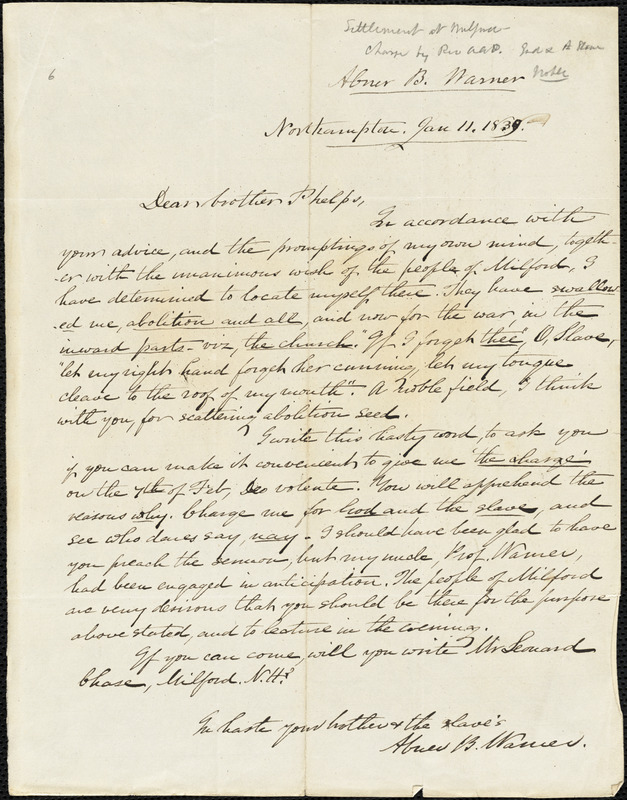 Settlement at Milford
Charge by Rev A.A.P.
6
Abner B. Warner
Notes
Northampton. Jan 11. 1839.
Dear brother Phelps,
In accordance with
your advice, and the promptings of my own mind, togeth-
-er with the unanimous wish of the people of Milford, I
have determined to locate myself there. They have swallow-
-ed me, abolition and all, and now for the war, in the
inward parts - viz, the church. "If I forget thee", O, Slave,
"let my right hand forget her cunning, let my tongue
cleave to the roof of my mouth". A noble field, I think
with you, for scattering abolition seed.
I write this hasty word, to ask you
if you can make it convenient to give me the charge
on the 7th of Feb, Deo volente. You will apprehend the
reasons why. Charge me for God and the slave, and
see who dares say nay - I should have been glad to have
you preach the sermon, but my uncle, Prof. Warner,
had been engaged in anticipation. The people of Milford
are very desirous that you should be there for the purpose
above stated, and to lecture in the evening.
If you can come, will you write Mr Leonard
Chase, Milford. N.H?
In haste your brother & the slave's
Abner B. Warner.